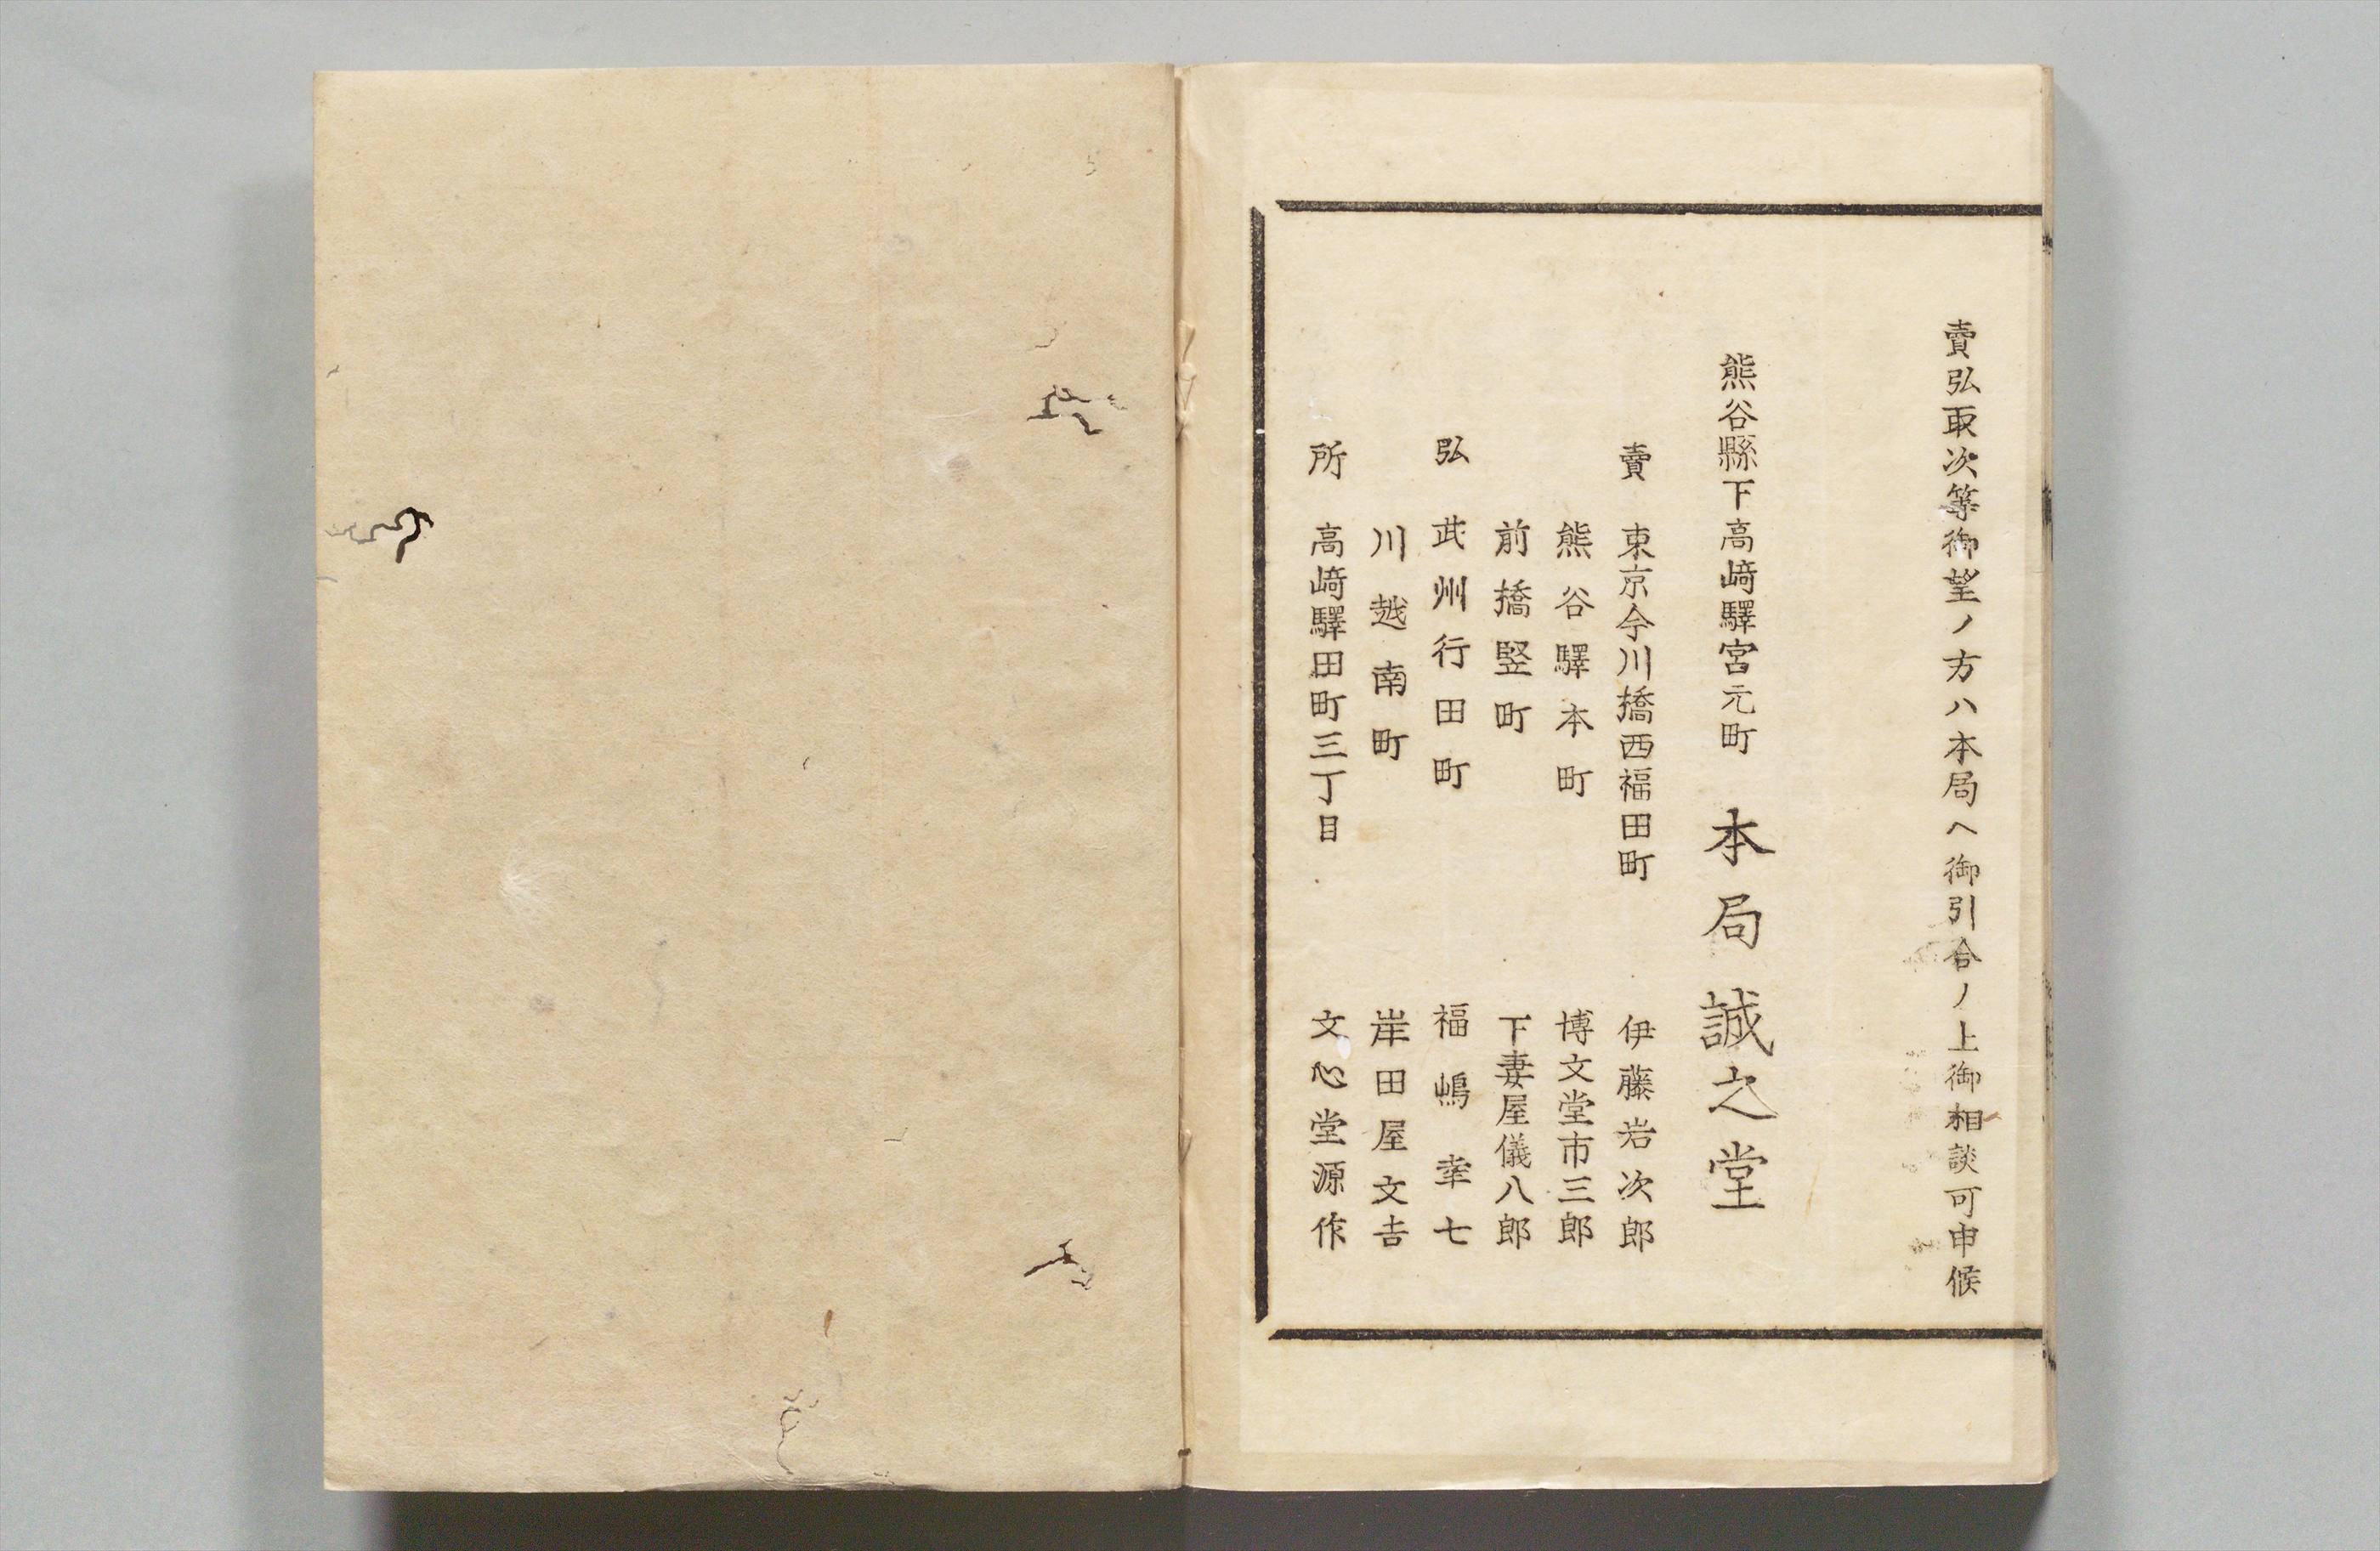 賣弘取次等御望ノ方ハ本局ヘ御引合ノ上御相談可申候
熊谷縣下高﨑驛宮元町 本局 誠之堂
賣 東京今川橋西福田町 伊藤岩次郎
熊谷驛本町 博文堂市三郎
前橋竪町 下妻屋儀八郎
弘 武州行田町 福嶋幸七
川越南町 岸田屋文吉
所 高﨑驛田町三丁目 文心堂源作